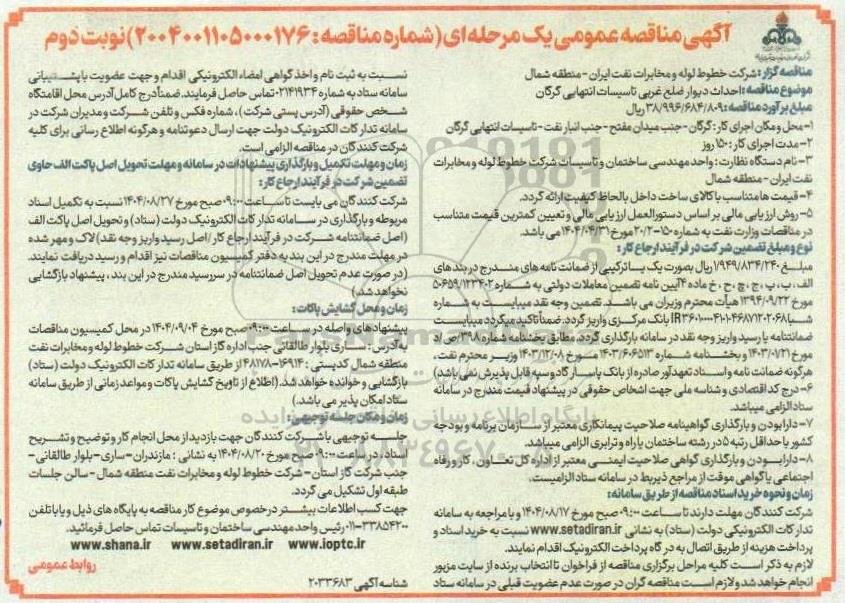 آگهی مناقصه عمومی یک مرحله ای (شماره مناقصه: ۲۰۰۴۰۰۱۱۰۵۰۰۰۱۷۶) نوبت دوم
مناقصه گزار: شرکت خطوط لوله و مخابرات نفت ایران - منطقه شمال
موضوع مناقصه: احداث دیوار ضلع غربی تاسیسات انتهایی گرگان
مبلغ برآورد مناقصه: ۳۸/۹۹۶/۶۸۴/۸۰۹ ریال
۱- محل و مکان اجرای کار: گرگان - جنب میدان مفتح - جنب انبار نفت - تاسیسات انتهایی گرگان
۲- مدت اجرای کار: ۱۵۰ روز
۳- نام دستگاه نظارت: واحد مهندسی ساختمان و تاسیسات شرکت خطوط لوله و مخابرات
نفت ایران - منطقه شمال
۴- قیمت ها متناسب با کالای ساخت داخل بالحاظ کیفیت ارائه گردد.
۵- روش ارزیابی مالی بر اساس دستورالعمل ارزیابی مالی و تعیین کمترین قیمت متناسب
در مناقصات وزارت نفت به شماره ۱۵۰-۲۰/۲ مورخ ۱۴۰۴/۰۴/۳۱ می باشد.
نوع و مبلغ تضمین شرکت در فرآیند ارجاع کار:
مبلغ ۱/۹۴۹/۸۳۴/۲۴۰ ریال بصورت یک یا ترکیبی از ضمانت نامه های مندرج در بند های
الف، ب، پ، ج، چ، ح، خ ماده ۴ آیین نامه تضمین معاملات دولتی به شماره ۱۲۳۴۰۲/ت۵۰۶۵۹
مورخ ۱۳۹۴/۰۹/۲۲ هیأت محترم وزیران می باشد. تضمین وجه نقد میبایست به شماره
بانک مرکزی واریز گردد. ضمنا تاکید میگردد میبایست
ضمانتنامه یا رسید واریز وجه نقد در سامانه بارگذاری گردد. مطابق بخشنامه شماره ۳۹۸/ص/د
مورخ ۱۴۰۳/۰۹/۲۱ و بخشنامه شماره ۱۴۰۳/۶۰۶۵۱۳ مورخ ۱۴۰۳/۱۲/۰۸ وزیر محترم نفت،
هرگونه ضمانت نامه و اسناد تعهدآور صادره از بانک پاسارگاد و سپه قابل پذیرش نمی باشد)
۶- درج کد اقتصادی و شناسه ملی جهت اشخاص حقوقی در پیشنهاد قیمت مندرج در سامانه
ستاد الزامی میباشد.
۷- دارا بودن و بارگذاری گواهینامه صلاحیت پیمانکاری معتبر از سازمان برنامه و بودجه
کشور با حداقل رتبه ۵ در رشته ساختمان یا راه و ترابری الزامی میباشد.
۸- دارا بودن و بارگذاری گواهی صلاحیت ایمنی معتبر از اداره کل تعاون، کار و رفاه
اجتماعی یا گواهی موقت از مراجع ذیربط در سامانه ستاد الزامیست.
زمان و نحوه خرید اسناد مناقصه از طریق سامانه:
شرکت کنندگان مهلت دارند تا ساعت ۰۹:۰۰ صبح مورخ ۱۴۰۴/۰۸/۱۷ و با مراجعه به سامانه
تدارکات الکترونیکی دولت (ستاد) به نشانی www.setadiran.ir نسبت به خرید اسناد و
پرداخت هزینه از طریق اتصال به درگاه پرداخت الکترونیک اقدام نمایند.
لازم به ذکر است کلیه مراحل برگزاری مناقصه از فراخوان تا انتخاب برنده از سایت مزبور
انجام خواهد شد و لازم است مناقصه گران در صورت عدم عضویت قبلی در سامانه ستاد
نسبت به ثبت نام و اخذ گواهی امضاء الکترونیکی اقدام و جهت عضویت با پشتیبانی
سامانه ستاد به شماره ۰۲۱۴۱۹۳۴ تماس حاصل فرمایند. ضمنا درج کامل آدرس محل اقامتگاه
شخص حقوقی (آدرس پستی شرکت)، شماره فکس و تلفن شرکت و مدیران شرکت در
سامانه تدارکات الکترونیک دولت جهت ارسال دعوتنامه و هرگونه اطلاع رسانی برای کلیه
شرکت کنندگان در مناقصه الزامی است.
زمان و مهلت تکمیل و بارگذاری پیشنهادات در سامانه و مهلت تحویل اصل پاکت الف حاوی
تضمین شرکت در فرآیند ارجاع کار:
شرکت کنندگان می بایست تا ساعت ۰۹:۰۰ صبح مورخ ۱۴۰۴/۰۸/۲۷ نسبت به تکمیل اسناد
مربوطه و بارگذاری در سامانه تدارکات الکترونیک دولت (ستاد) و تحویل اصل پاکت الف
(اصل ضمانتنامه شرکت در فرآیند ارجاع کار / اصل رسید واریز وجه نقد) لاک و مهر شده
در مهلت مندرج در این بند به دفتر کمیسیون مناقصات نیز اقدام و رسید دریافت نمایند.
(در صورت عدم تحویل اصل ضمانتنامه در سررسید مندرج در این بند، پیشنهاد بازگشایی
نخواهد شد.)
زمان و محل گشایش پاکات:
پیشنهادهای واصله در ساعت ۰۹:۰۰ صبح مورخ ۱۴۰۴/۰۹/۰۴ در محل کمیسیون مناقصات
به آدرس: ساری بلوار طالقانی جنب اداره گاز استان شرکت خطوط لوله و مخابرات نفت
منطقه شمال کدپستی: ۱۶۹۱۴-۴۸۱۷۸ از طریق سامانه تدارکات الکترونیک دولت (ستاد)
بازگشایی و خوانده خواهد شد. (اطلاع از تاریخ گشایش پاکات و مواعد زمانی از طریق سامانه
ستاد امکان پذیر می باشد.)
زمان و مکان جلسه توجیهی:
جلسه توجیهی با شرکت کنندگان جهت بازدید از محل انجام کار و توضیح و تشریح
اسناد، در ساعت ۰۹:۰۰ صبح مورخ ۱۴۰۴/۰۸/۲۰ به نشانی: مازندران - ساری - بلوار طالقانی -
جنب شرکت گاز استان - شرکت خطوط لوله و مخابرات نفت منطقه شمال - سالن جلسات
طبقه اول تشکیل می گردد.
جهت کسب اطلاعات بیشتر در خصوص موضوع کار مناقصه به پایگاه های ذیل و یا با تلفن
۰۱۱-۳۳۸۵۴۲۰۰ رئیس واحد مهندسی ساختمان و تاسیسات تماس حاصل فرمائید.
www.shana.ir www.setadiran.ir www.ioptc.ir
روابط عمومی
شناسه آگهی ۲۰۳۳۶۸۳